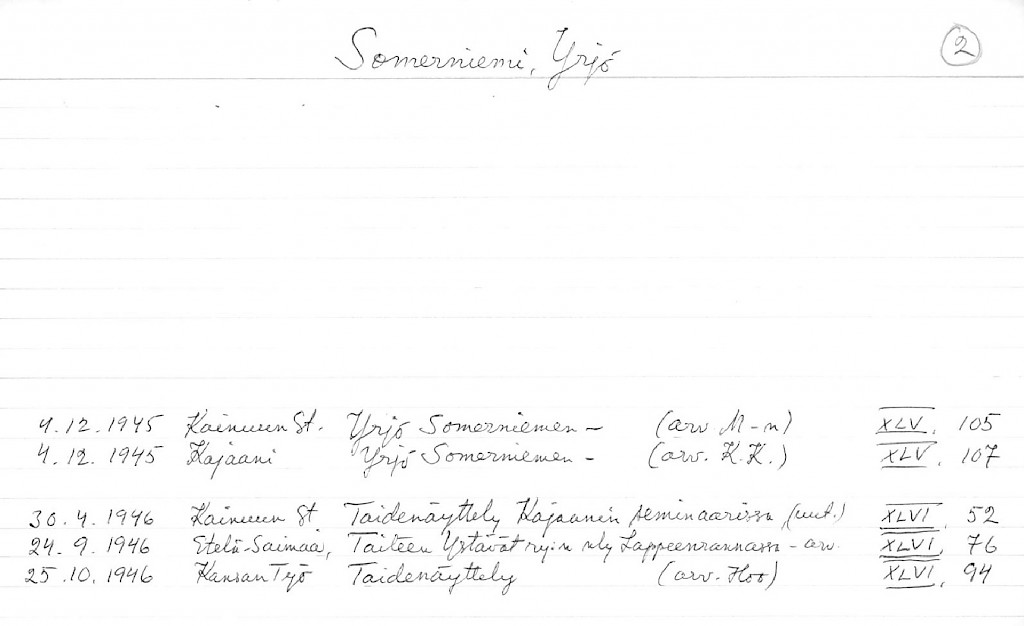 Somerniemi, Yrjö 2
4.12.1945 Kainuun St. Yrjö Somerniemen – (arv M-n) XLV, 105
4.12.1945 Kajaani Yrjö Somerniemen – (arv. K.K.) XLV, 107
30.4.1946 Kainuun St Taidenäyttely Kajaanin seminaarissa (uut.) XLVI, 52
24.9.1946 Etelä-Saimaa, Taiteen Ystävät ry:n nly Lappeenrannassa – arv. XLVI, 76
25.10.1946 Kansan Työ Taidenäyttely (arv. Hoo) XLVI, 94